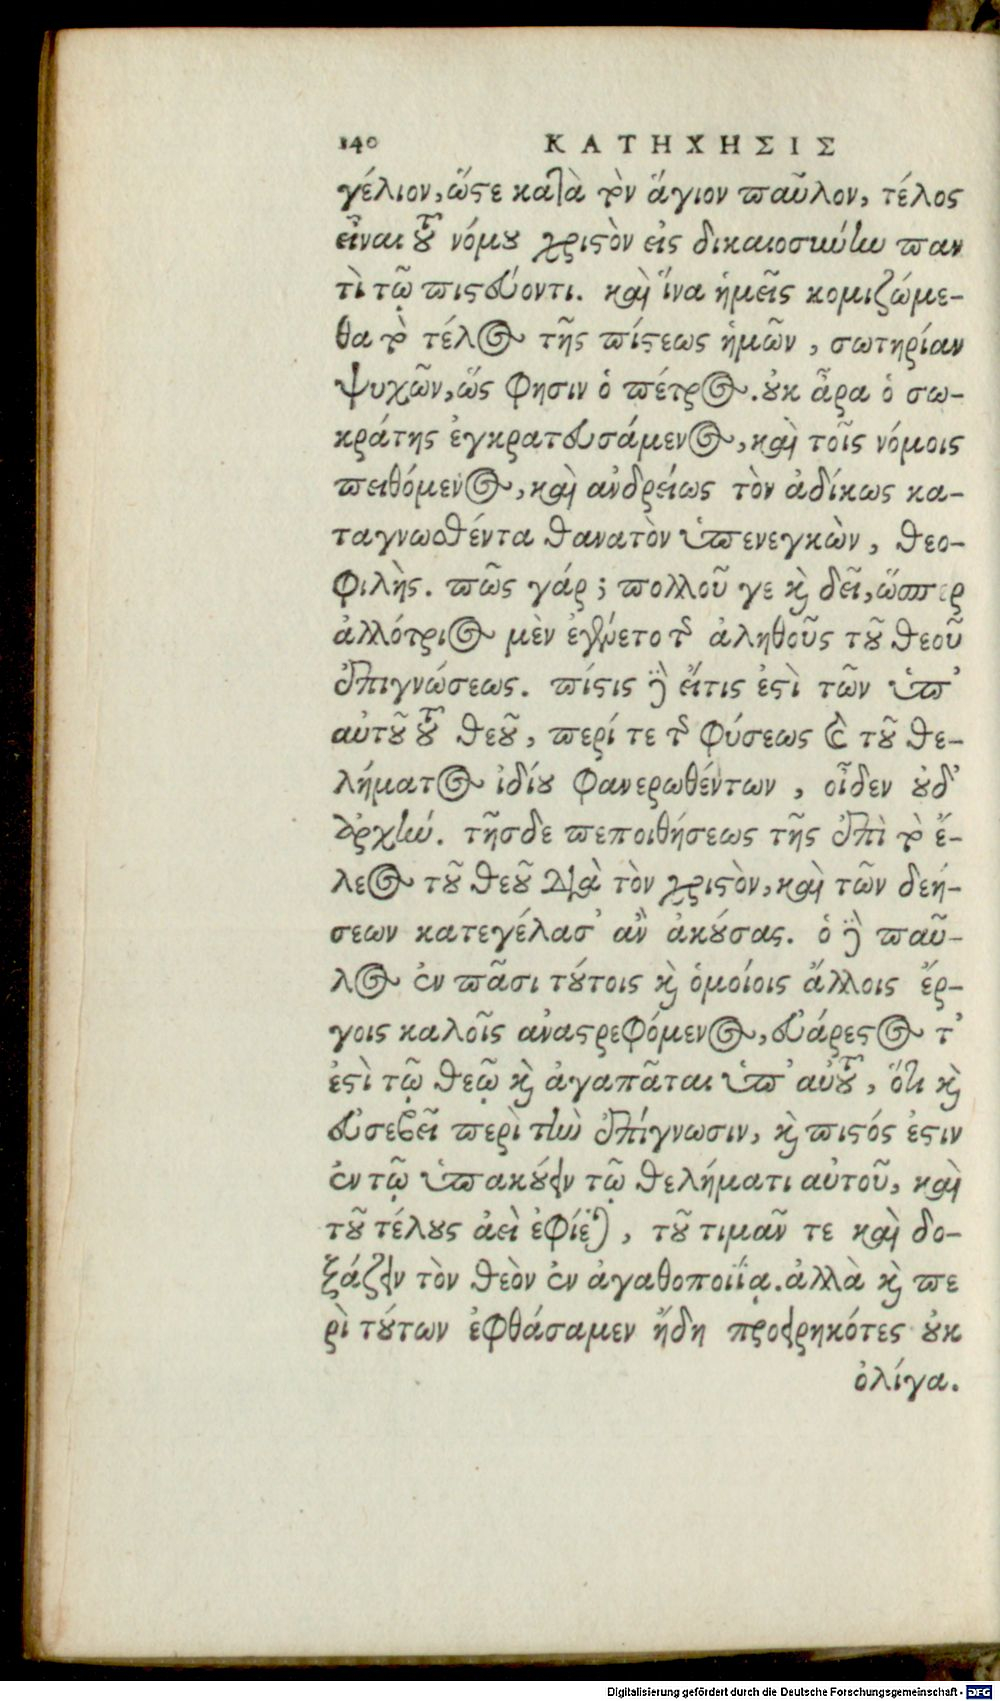 140 ΚΑΤΗΧΗΣΙΣ
γέλιον, ὥϛε καὶὰ τὸν ἅγιον παῦλον, τέλος
εἶναι τοῦ νόμου χριϛὸν εἰς δικαιοσύνην παν
τὶ τῷ πιϛεύοντι. καὶ ἵνα ἡμεῖς κομιζώμε-
θα τὸ τέλος τῆς πίϛεως ἡμῶν, σωτηρίαν
ψυχῶν, ὥς φησιν ὁ πέτρος. οὐκ ἆρα ὁ σω-
κράτης ἐγκρατευσάμενος, καὶ τοῖς νόμοις
πειθόμενος, καὶ ἀνδρείως τὸν ἀδίκως κα-
ταγνωσθέντα θανατὸν ὑπενεγκὼν, θεο-
φιλὴς. πῶς γάρ; πολλοῦ γε καὶ δεῖ, ὥσπερ
ἀλλότριος μὲν ἐγένετο τῆς ἀληθοῦς τοῦ θεοῦ
ἐπιγνώσεως. πίϛις δὲ εἴτις ἐϛὶ τῶν ὑπ'
αὐτοῦ τοῦ θεοῦ, περί τε τῆς φύσεως καὶ τοῦ θε-
λήματος ἰδίου φανερωθέντων, οἶδεν οὐδ'
ἀρχήν. τῆσδε πεποιθήσεως τῆς ἐπὶ τὸ ἔ-
λεος τοῦ θεοῦ διὰ τὸν χριϛὸν, καὶ τῶν δεή-
σεων κατεγέλασ' ἂν ἀκούσας. ὁ δὲ παῦ-
λος ἐν πᾶσι τούτοις καὶ ὁμοίοις ἄλλοις ἔρ-
γοις καλοῖς ἀναϛρεφόμενος, εὐάρεϛος τ'
ἐϛὶ τῷ θεῷ καὶ ἀγαπᾶται ὑπ' αὐτοῦ, ὅτι καὶ
εὐσεβεῖ περὶ τὴν ἐπίγνωσιν, καὶ πιϛός ἐϛιν
ἐν τῷ ὑπακούειν τῷ θελήματι αὐτοῦ, καὶ
τοῦ τέλους ἀεὶ ἐφίεται, τοῦ τιμᾶν τε καὶ δο-
ξάζειν τὸν θεὸν ἐν ἀγαθοποιΐᾳ. ἀλλὰ καὶ πε
ρὶ τούτων ἐφθάσαμεν ἤδη προειρηκότες οὐκ
ὀλίγα.
Digitalisierung gefördert durch die Deutsche Forschungsgemeinschaft - DFG